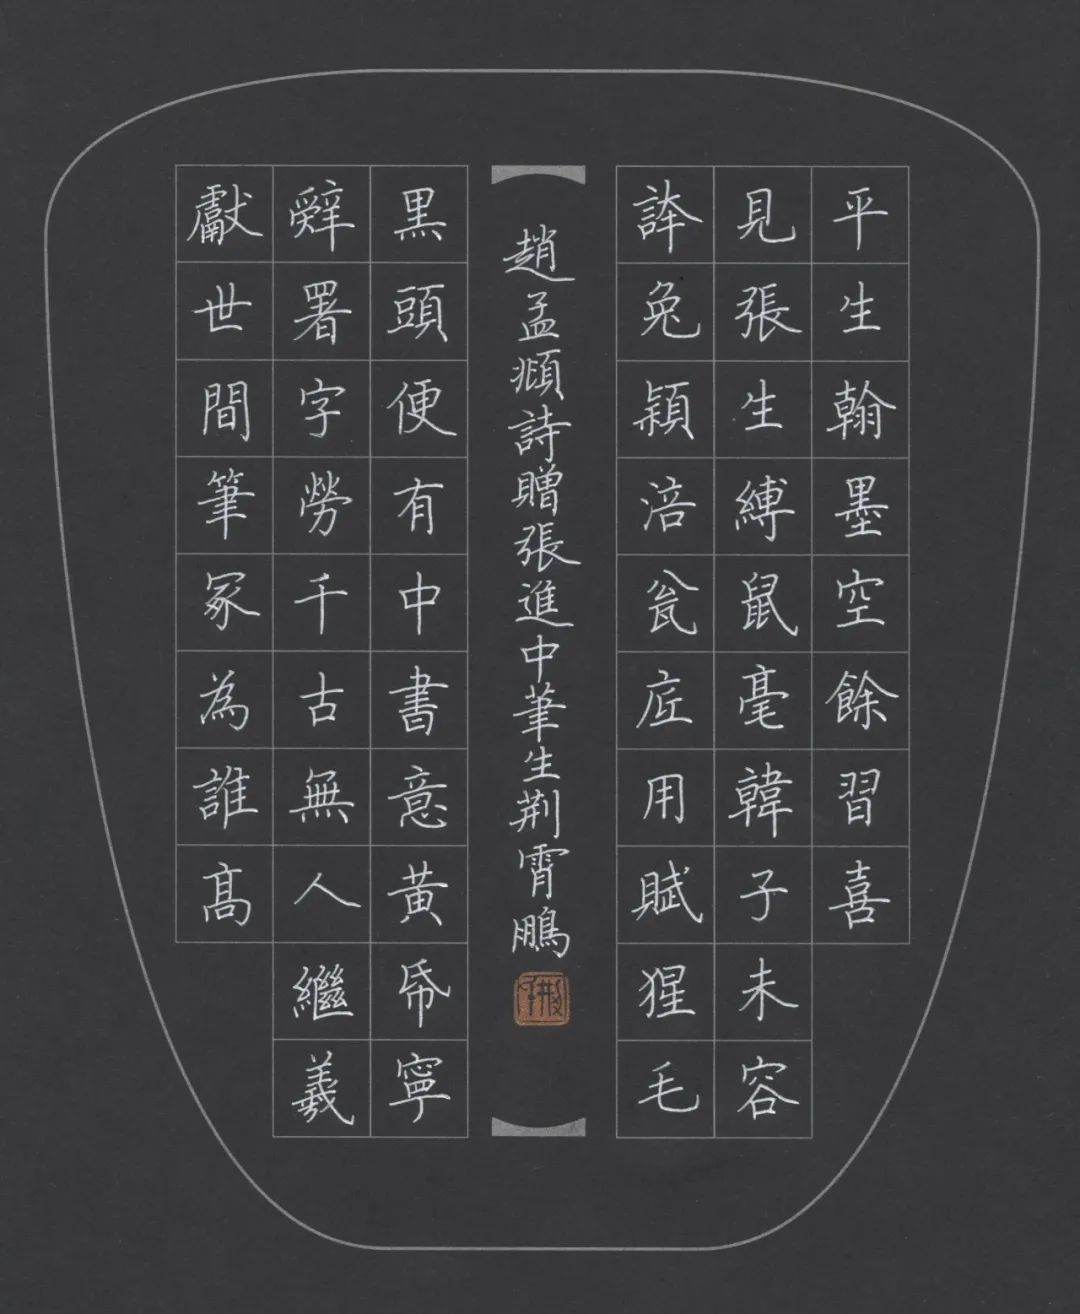 平生翰墨空餘習喜
見張生縛鼠毫韓子未容
誇兔穎涪瓮底用賦猩毛
趙孟頫詩贈張進中筆生荆霄鵬
黑頭便有中書意黃帋寧
辤署字勞千古無人繼羲
獻世間筆冢為誰髙